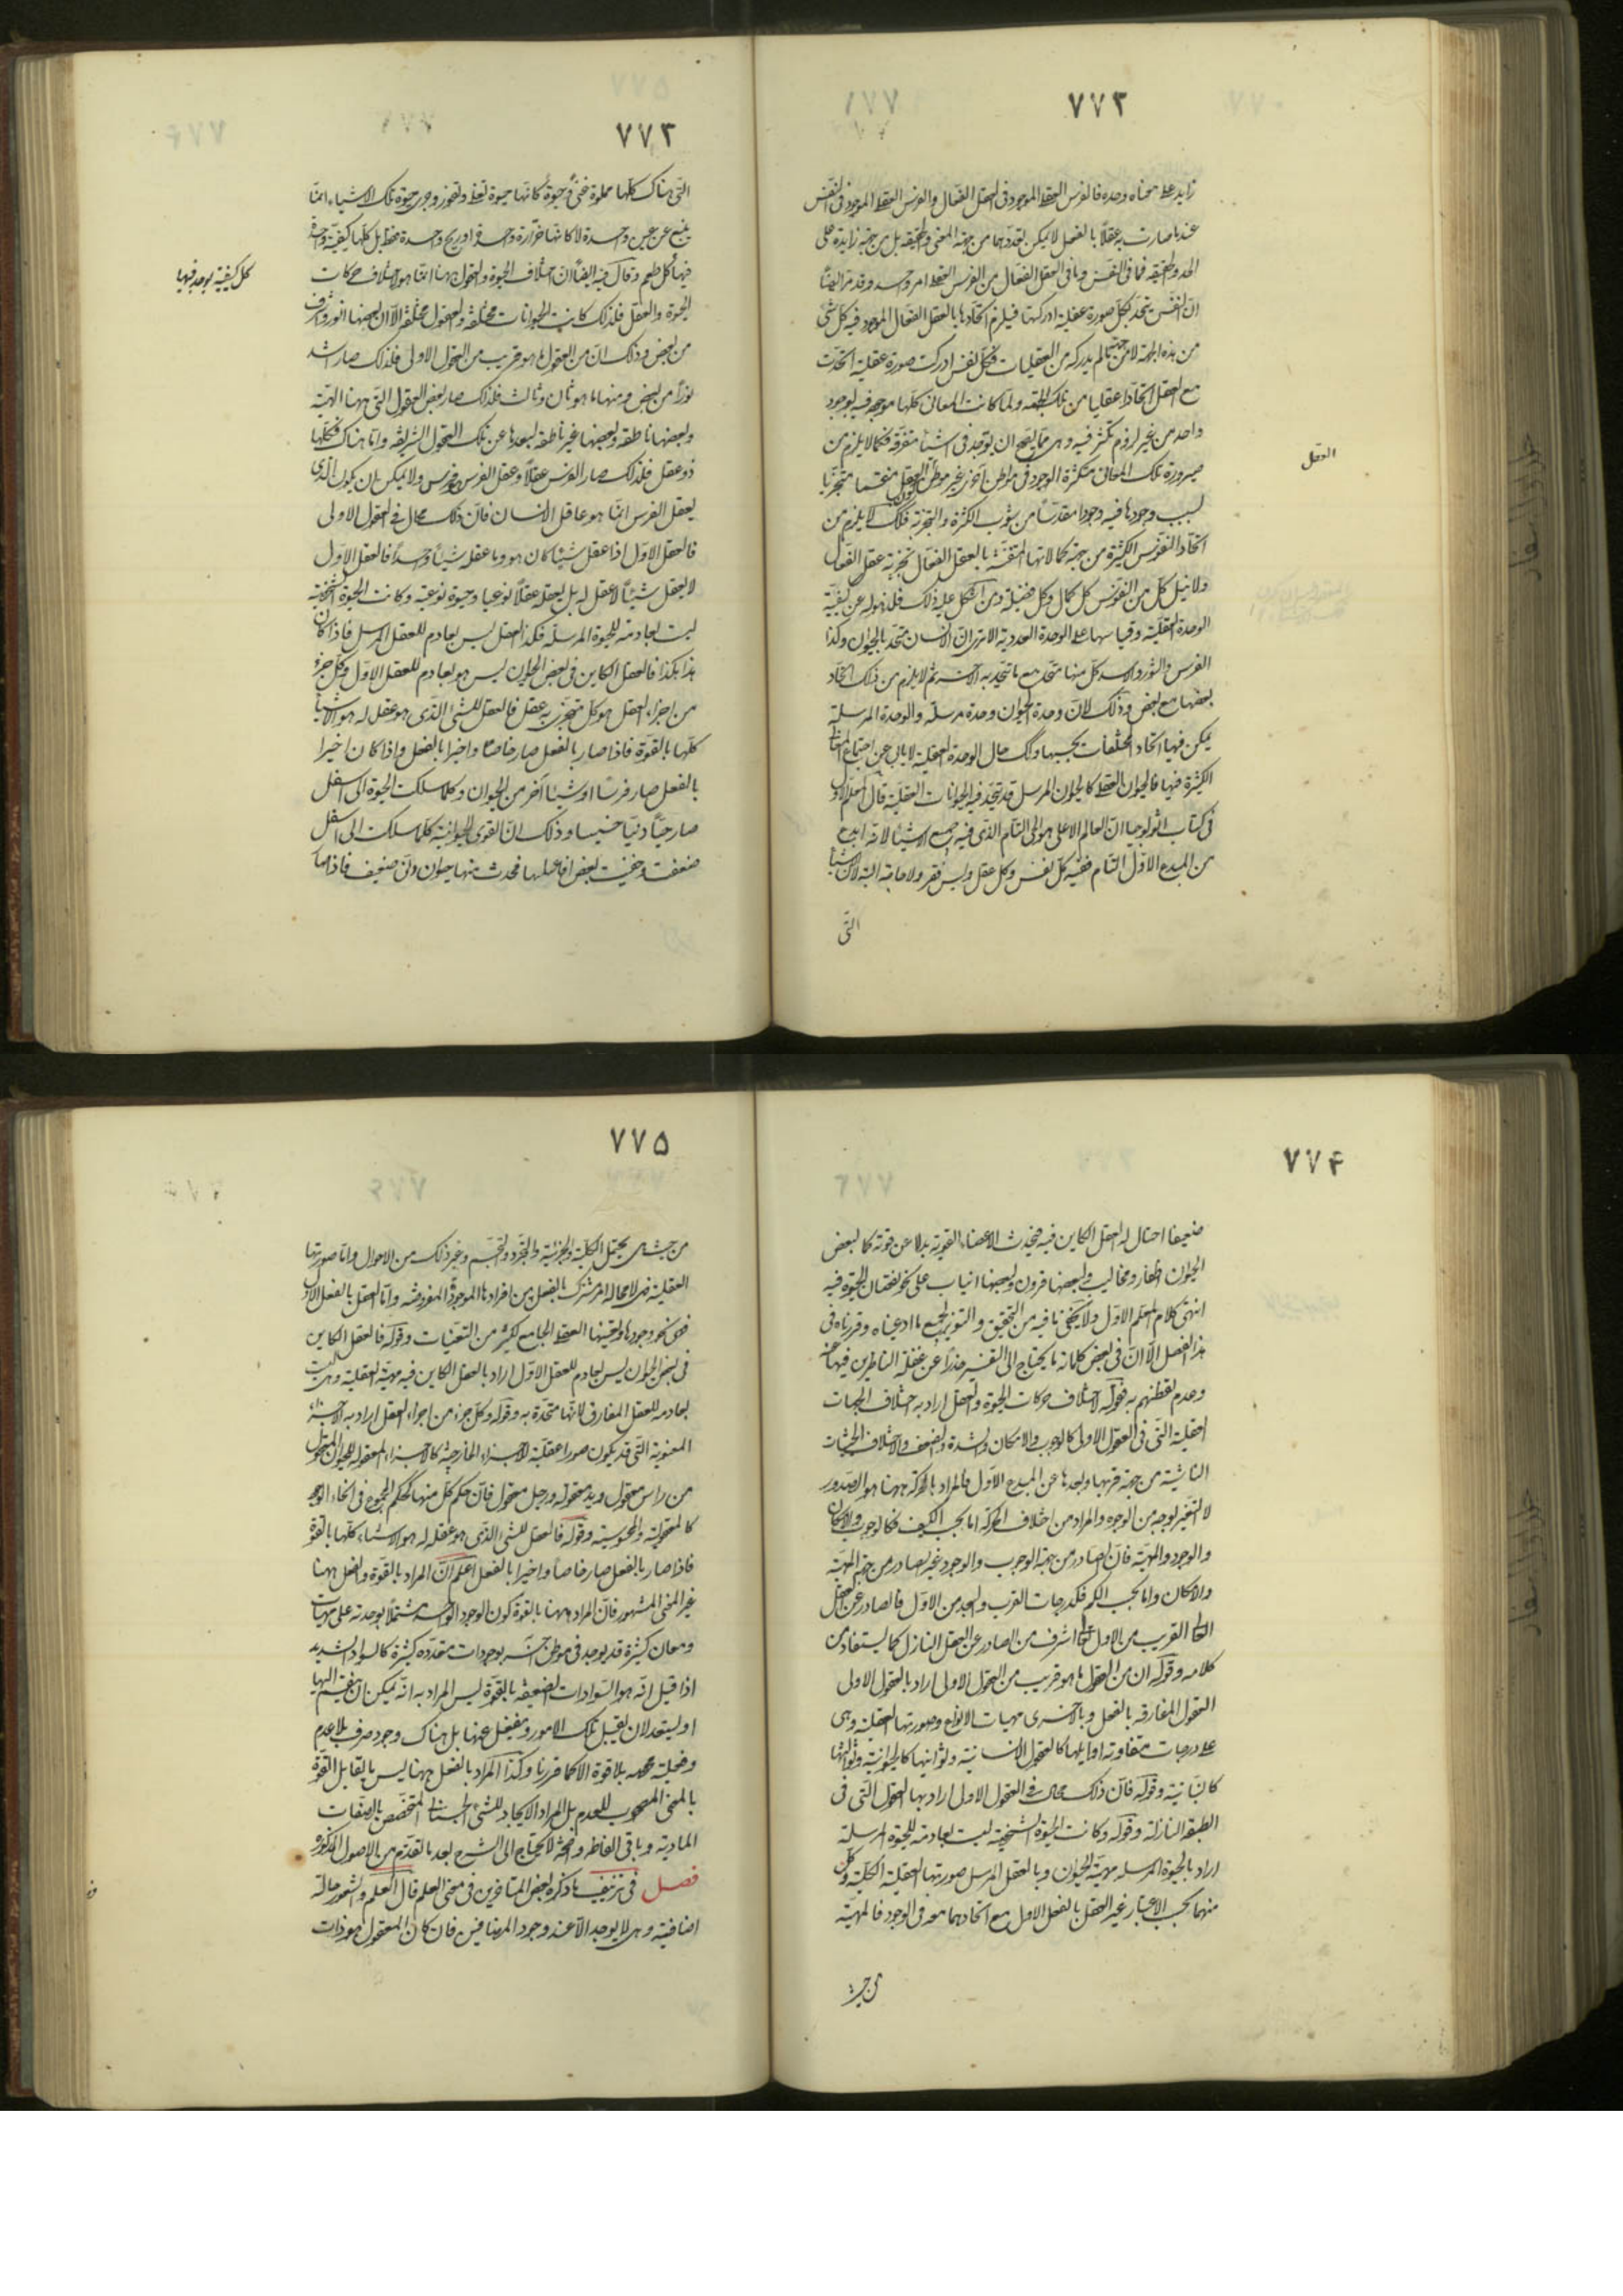 ٧٧٢
زايد على معناه وحده فالفرس العقلى الموجود فى العقل الفعال والفرس العقلى الموجود فى النفس
عند ما صارت به عقلاً بالفعل لا يمكن تعددهما من جهة المعنى والحقيقه بل من جهة زايدة على
الحد والحقيقه فما فى النفس وما فى العقل الفعال من الفرس العقلى امر واحد وقد مرّ ايضاً
ان النفس يتحد بكل صورة عقلية ادركتها فيلزم اتحادها بالعقل الفعال الموجود فيه كل شئ
من هذه الجهة لا من جهة ما لم يدركه من العقليات فكل نفس ادركت صورة عقلية اتحدت
مع العقل اتحادا عقليا من تلك الجهة ولما كانت المعانى كلها موجوده فيه بوجود
واحد من غير لزوم تكثر فيه وهى مما يصح ان يوجد فى اشياء متفرقه فكما لا يلزم من
صيرورة تلك المعانى متكثرة الوجود فى مواطن اخرى غير موطن العقل كون العقل منقسما متجزيا
بسبب وجودها فيه وجودا مقدسا من شوب الكثرة والتجزية فكذلك لا يلزم من
اتحاد النفوس الكثيرة من جهة كمالاتها المتفننة بالعقل الفعال تجزية عقل الفعال
ولا نيل كل من النفوس كل كمال وكل فضيلة ومن اشكل عليه ذلك فلذهوله عن كيفية
الوحدة العقلية وقياسها على الوحدة العددية الا ترى ان الانسان متحد بالحيوان وكذا
الفرس والثور والاسد كل منها متحد مع ما يتحد به الآخر ثم لا يلزم من ذلك اتحاد
بعضها مع بعض وذلك لان وحدة الحيوان وحدة مرسلة والوحدة المرسلة
يمكن فيها اتحاد المختلفات بحسبها وكذلك حال الوحدة العقلية لا يابى عن اجتماع المعانى
الكثيرة فيها فالحيوان العقلى كالحيوان المرسل قد يتحد فيه الحيوانات العقلية قال المعلم الاول
فى كتاب اثولوجيا ان العالم الاعلى هو الحى التام الذى فيه جميع الاشياء لانه ابدع
من المبدع الاول التام ففيه كل نفس وكل عقل وليس فقر ولا حاجة البتة لان الاشياء
التى
العقل
٧٧٣
التى هناك كلها مملوة غنى وحيوة كانها حيوة تغلى وتفور وجرى حيوة تلك الاشياء انما
ينبع عن عين واحدة لا كانها حرارة واحدة او ريح واحدة فقط بل كلها كيفية واحدة
فيها كل طعم وقال فيه ايضاً ان اختلاف الحيوة والعقول ههنا انما هو لاختلاف حركات
الحيوة والعقل فلذلك كانت الحيوانات مختلفة والعقول مختلفة الا ان بعضها انور واشرف
من بعض وذلك ان من العقول ما هو قريب من العقول الاولى فلذلك صار اشد
نوراً من بعض ومنها ما هو ثان وثالث فلذلك صار بعض العقول التى ههنا الهيه
وبعضها ناطقه وبعضها غير ناطقه لبعدها عن تلك العقول الشريفه واما هناك فكلها
ذو عقل فلذلك صار الفرس عقلاً وعقل الفرس فرس ولا يمكن ان يكون الذى
يعقل الفرس انما هو عاقل الانسان فان ذلك محال فى العقول الاولى
فالعقل الاول اذا عقل شيئا كان هو وما عقله شيئاً واحداً فالعقل الاول
لا يعقل شيئاً لا عقل له بل يعقله عقلاً نوعيا وحيوة نوعية وكانت الحيوة الشخصية
ليست بعادمة للحيوة المرسلة فكذا العقل ليس بعادم للعقل المرسل فاذا كان
هذا هكذا فالعقل الكاين فى بعض الحيوان ليس هو بعادم للعقل الاول وكل جزء
من اجزاء العقل هو كل يتجزى به عقل فالعقل للشئ الذى هو عقل له هو الاشياء
كلها بالقوة فاذا صار بالفعل صار خاصا واخيرا بالفعل واذا كان اخيرا
بالفعل صار فرسا او شيئا آخر من الحيوان وكلما سلكت الحيوة الى اسفل
صار حيّا دنيا خسيسا وذلك ان القوى الحيوانية كلما سلكت الى اسفل
ضعفت وخفيت بعض افاعيلها فحدث منها حيوان دنى ضعيف فاذا ما كان
كل كيفية يوجد فيها
٧٧۴
ضعيفا احتال له العقل الكاين فيه فيحدث الاعضاء القوية بدلا عن قوته كما لبعض
الحيوان اظفار ومخاليب ولبعضها قرون ولبعضها انياب على نحو نقصان الحيوة فيه
انتهى كلام المعلم الاول ولا يخفى ما فيه من التحقيق والتنوير لجميع ما ادعيناه وقررناه فى
هذا الفصل الا ان فى بعض كلماته ما يحتاج الى التفسير حذراً عن غفلة الناظرين فيها عنه
وعدم تفطنهم به فقوله لاختلاف حركات الحيوة والعقل اراد به اختلاف الجهات
العقلية التى فى العقول الاولى كالوجوب والامكان والشدة والضعف والاختلاف الحيثيات
الناشئة من جهة قربها وبعدها عن المبدع الاول فالمراد بالحركة ههنا هو الصدور
لا التغير بوجه من الوجوه والمراد من اختلاف الحركة اما بحسب الكيف فكالوجوب والامكان
والوجود والمهية فان الصادر من جهة الوجوب والوجود غير الصادر من جهة المهية
والامكان واما بحسب الكم فكدرجات القرب والبعد من الاول فالصادر عن العقل
العالى القريب من الاول تعالى اشرف من الصادر عن العقل النازل كما يستفاد من
كلامه وقوله ان من العقول ما هو قريب من العقول الاولى اراد بالعقول الاولى
العقول المفارقه بالفعل وبالاخرى مهيات الانواع وصورتها العقلية وهى
على درجات متفاوته اوايلها كالعقول الانسانية وثوانيها كالحيوانية وثوالثها
كالنباتية وقوله فان ذلك محال فى العقول الاولى اراد بها العقول التى فى
الطبقة النازلة وقوله وكانت الحيوة الشخصية ليست بعادمة للحيوة المرسلة
اراد بالحيوة المرسله مهية الحيوان وبالعقل المرسل صورتها العقلية الكلية وكل
منهما بحسب الاعتبار غير العقل بالفعل الاول مع اتحادهما معه فى الوجود فالمهية
من حيث
٧٧۵
من حيث هى يحتمل الكلية والجزئية والتجرد والتجسم وغير ذلك من الاحوال واما صورتها
العقلية فهى لا محاله امر مشترك بالفعل بين افرادها الموجودة المفروضه واما العقل بالفعل الاول
فهى نحو وجودها وتعينها العقلى الجامع لكثير من التعينات وقوله فالعقل الكاين
فى بعض الحيوان ليس بعادم للعقل الاول اراد بالعقل الكاين فيه مهيته العقلية وهى ليست
بعادمه للعقل المفارق لانها متحدة به وقوله وكل جزء من اجزاء العقل اراد به الاجزاء
المعنوية التى قد يكون صورا عقلية لاجزاء الخارجية كالاجزاء المعقوله للحيوان المعقول
من راس معقول ويد معقوله ورجل معقول فان حكم كل منها كحكم المجموع فى انحاء الوجود
كالمعقولية والمحسوسية وقوله فالعقل للشئ الذى هو عقل له هو الاشياء كلها بالقوة
فاذا صار بالفعل صار خاصاً واخيرا بالفعل اعلم ان المراد بالقوة والفعل ههنا
غير المعنى المشهور فان المراد ههنا بالقوة كون الوجود الواحد مشتملا بوحدته على مهيات
ومعان كثيرة قد يوجد فى موطن آخر بوجودات متعددة كثيرة كالسواد الشديد
اذا قيل انه هو السوادات الضعيفه بالقوة ليس المراد به انه يمكن ان ينقسم اليها
او يستعد لان يقبل تلك الامور وينفعل عنها بل هناك وجود صرف بلا عدم
وفعلية محضه بلا قوة الا كما قررنا وكذا المراد بالفعل ههنا ليس ما يقابل القوة
بالمعنى المصحوب للعدم بل المراد الايجاد للشئ الجسمانى المتخصص بالصفات
المادية وباقى الفاظه واضحة لا يحتاج الى الشرح بعد ما تقدم من الاصول المذكورة
فصل فى تزييف ما ذكره بعض المتاخرين فى معنى العلم قال العلم والشعور حالة
اضافية وهى لا يوجد الا عند وجود المضافين فان كان المعقول هو ذات